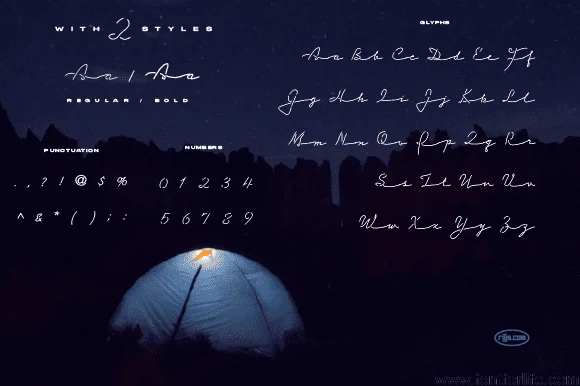 WITH 2 STYLES
Aa / Aa
REGULAR / BOLD
PUNCTUATION
. , ? ! @ $ %
^ & * ( ) ; :
NUMBERS
0 1 2 3 4
5 6 7 8 9
GLYPHS
Aa Bb Cc Dd Ee Ff
Gg Hh Ii Jj Kk Ll
Mm Nn Oo Pp Qq Rr
Ss Tt Uu Vv
Ww Xx Yy Zz